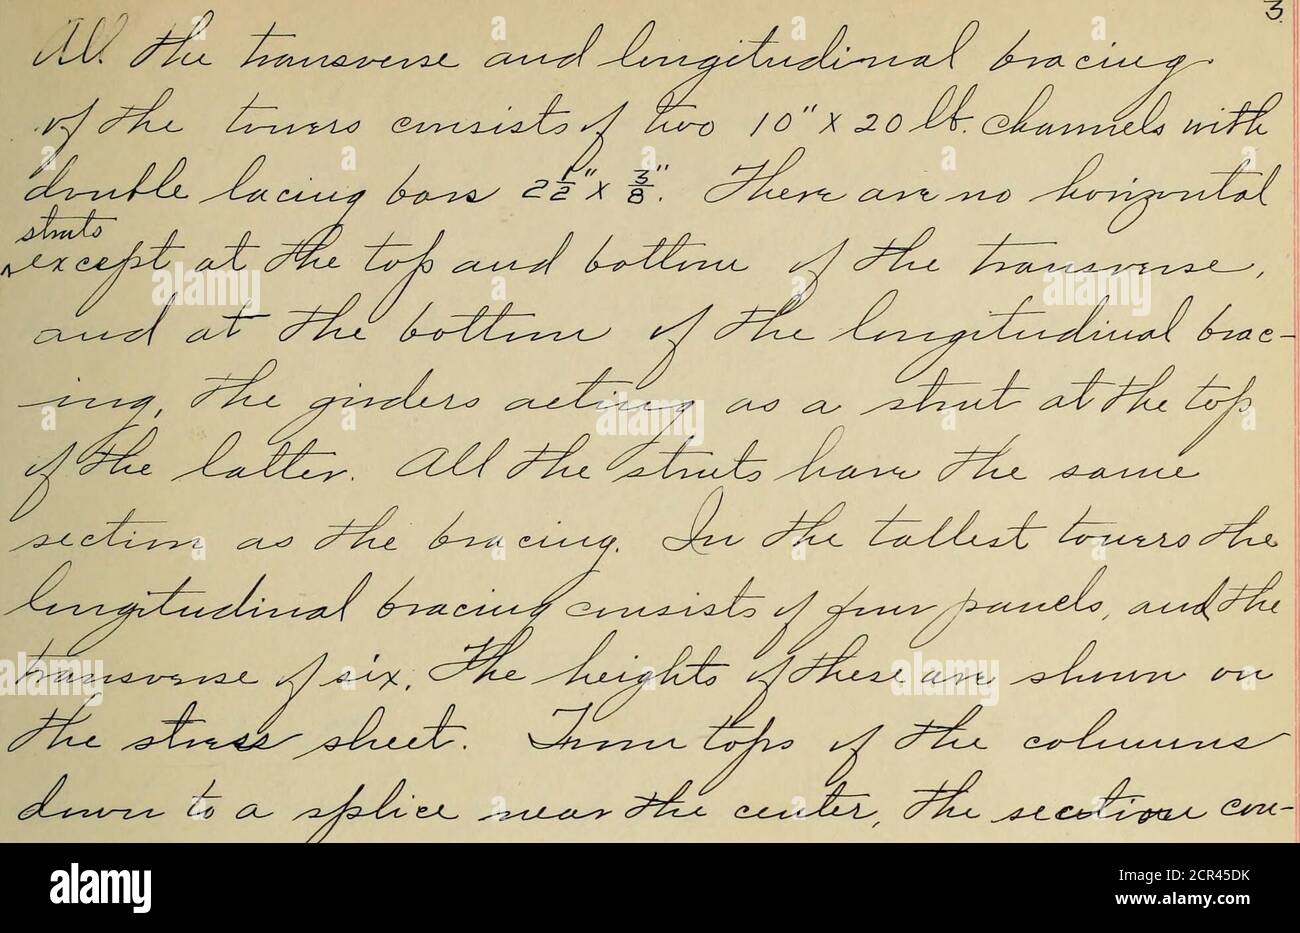 3.
All the transverse and longitudinal bracing
of the towers consists of two 10" x 20 lb. channels with
double lacing bars 2 1/2" x 3/8". There are no horizontal
struts
^except at the top and bottom of the transverse,
and at the bottom of the longitudinal brac-
ing, the girders acting as a strut at the top
of the latter. All the struts have the same
section as the bracing. In the tallest towers the
longitudinal bracing consists of four panels, and the
transverse of six. The heights of these are shown on
the stress sheet. From tops of the columns
down to a splice near the center, the section con-
alamy
Image ID: 2CR45DK
www.alamy.com